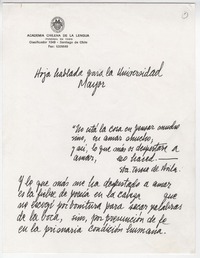 ACADEMIA CHILENA DE LA LENGUA
Clasificador 1349 - Santiago de Chile
Hoja hablada para la Universidad
Mayor
"No está la cosa en pensar mucho
sino, en amar mucho,
y así, lo que más os despertare a
amar, eso haced."
Sta. Teresa de Avila.
Y lo que más me ha despertado a amar
es la fiebre de poesía en la cabeza que
no escogí por ventura para sacar palabras
de la boca, sino, por presunción de fe
en la primaria condición humana.